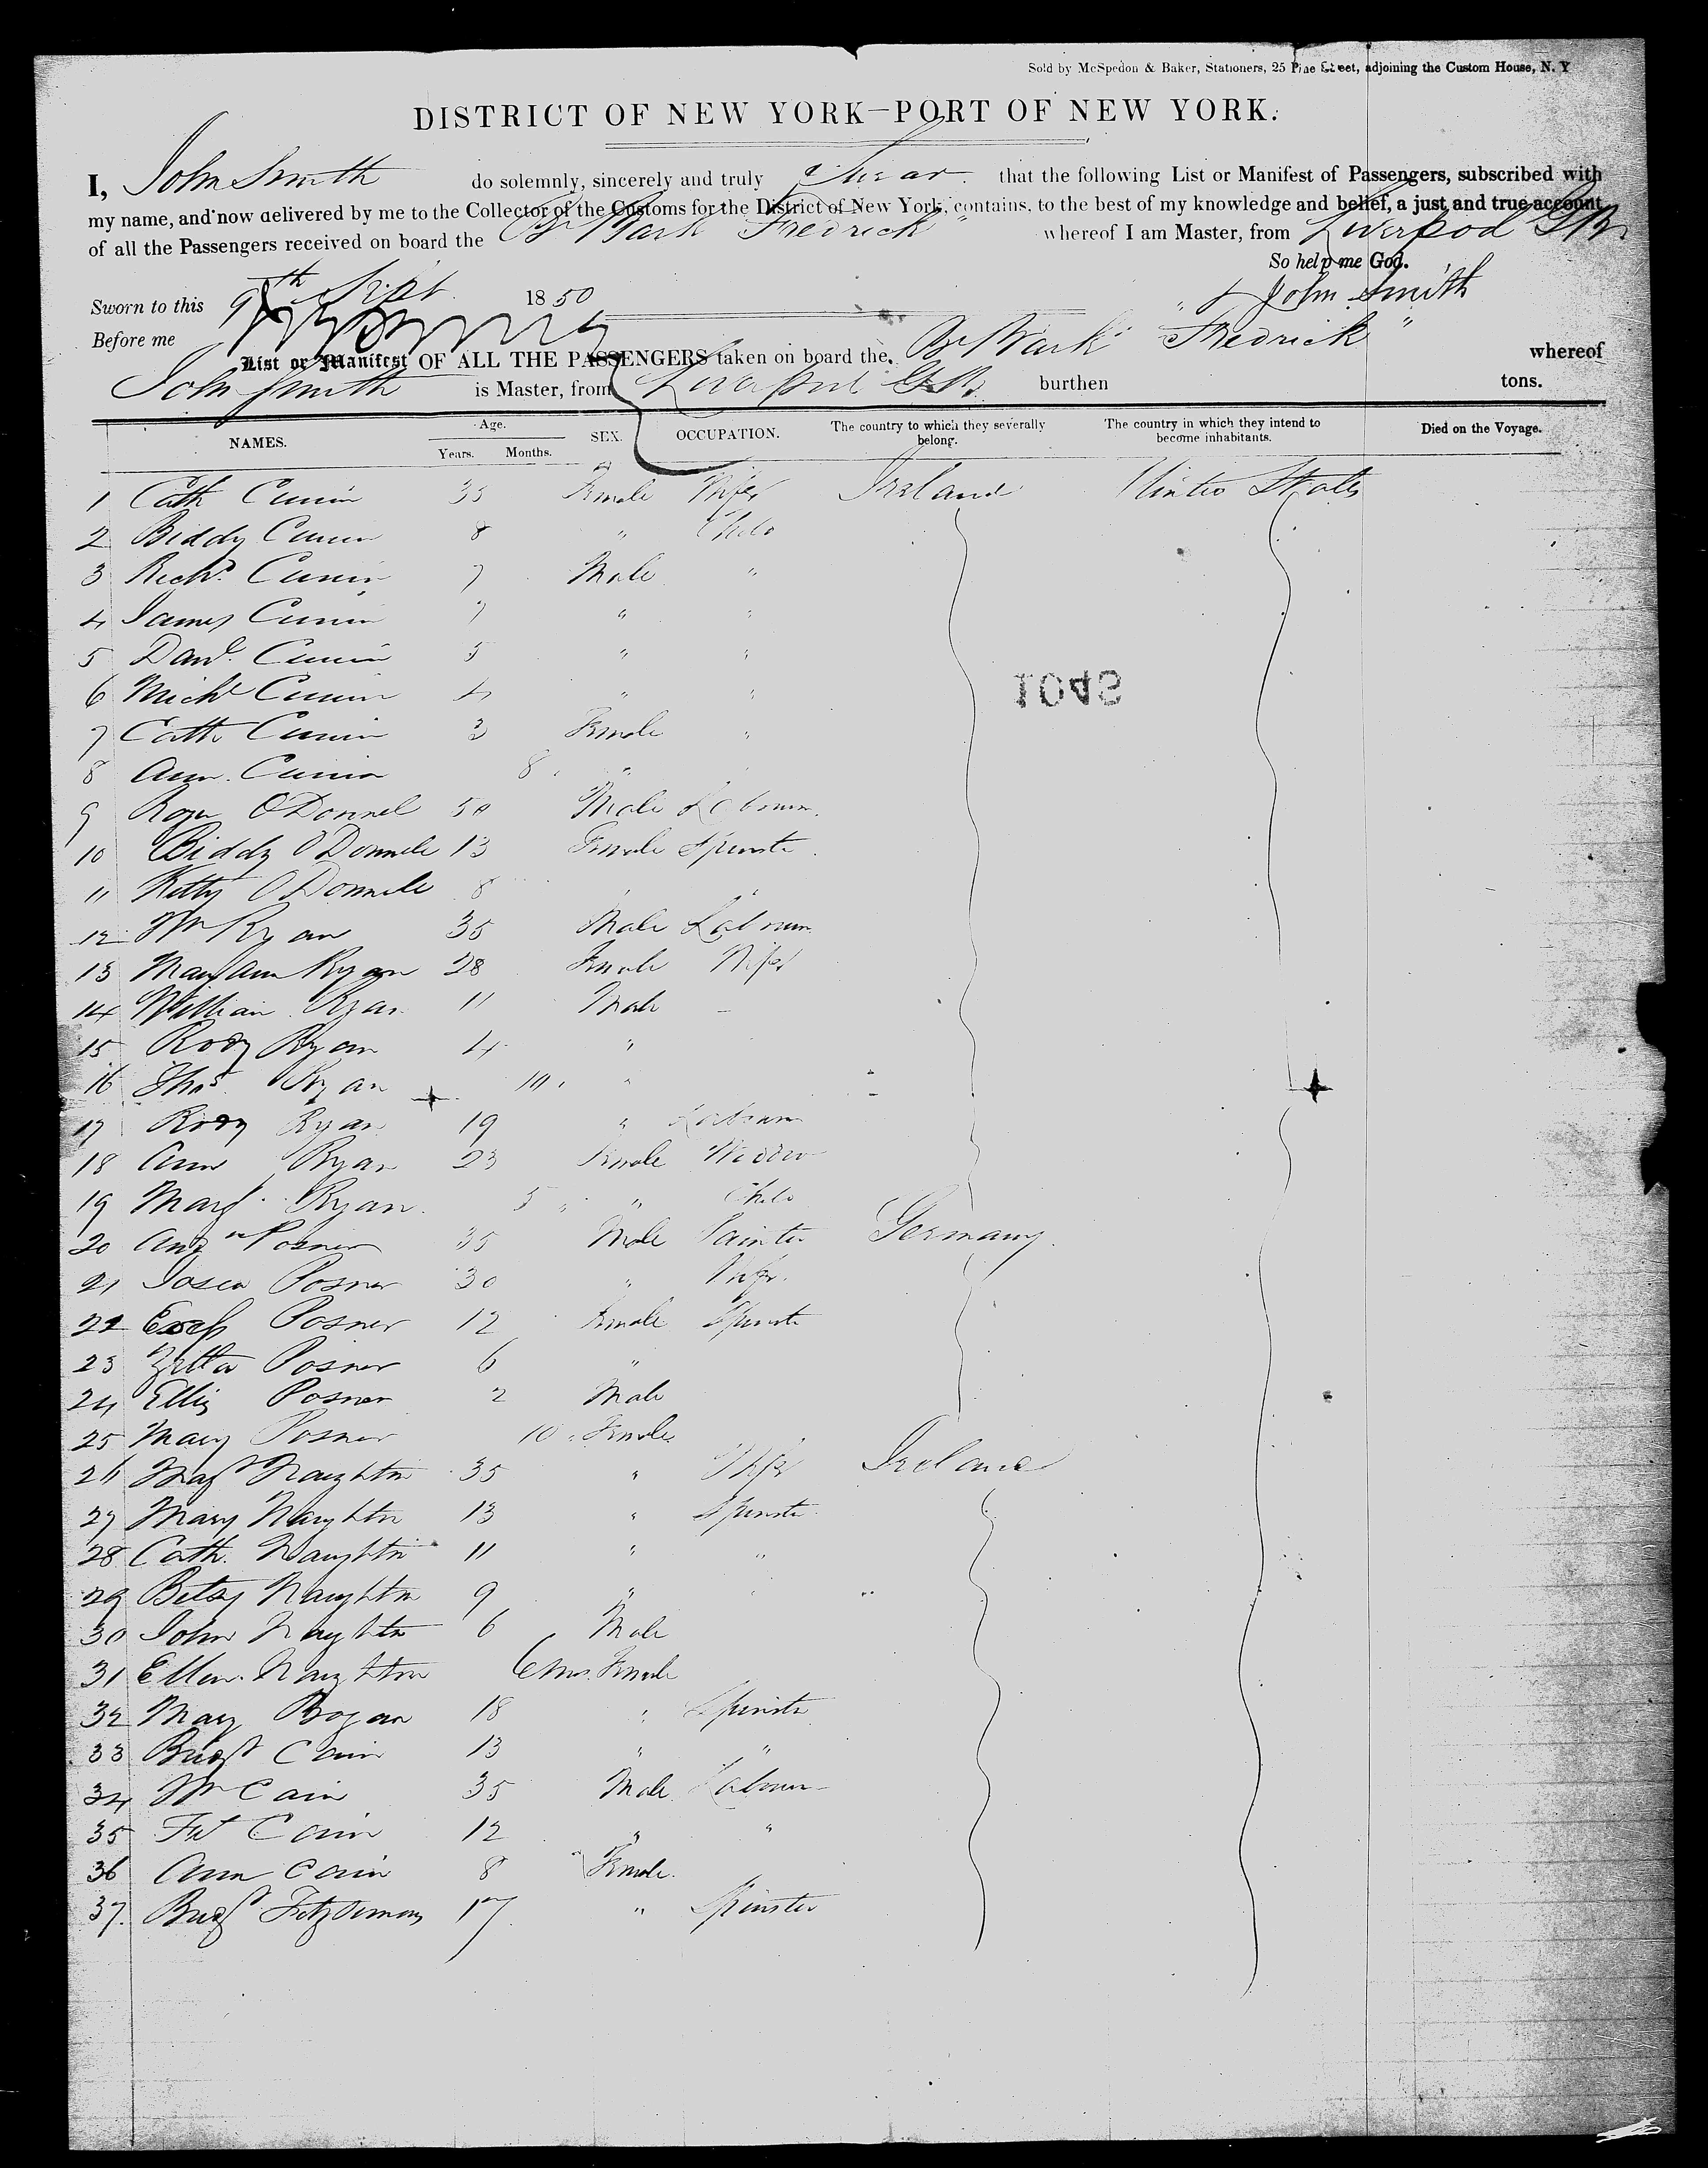 Sold by McSpedon & Baker, Stationers, 25 Pine Street, adjoining the Custom House, N. Y
DISTRICT OF NEW YORK—PORT OF NEW YORK.
I, John Smith do solemnly, sincerely and truly Swear that the following List or Manifest of Passengers, subscribed with
my name, and now delivered by me to the Collector of the Customs for the District of New York, contains, to the best of my knowledge and belief, a just and true account
of all the Passengers received on board the Br Bark "Fredrick" whereof I am Master, from Liverpool GB
So help me God.
Sworn to this 9th Sept 1850 John Smith
Before me
List or Manifest OF ALL THE PASSENGERS taken on board the Br Bark "Fredrick" whereof
John Smith is Master, from Liverpool G.B. burthen tons.
NAMES. Age. Years. Months. SEX. OCCUPATION. The country to which they severally belong. The country in which they intend to become inhabitants. Died on the Voyage.
1 Cath 35 Female Wife Ireland United States
2 Biddy 8 " Child
3 Richd. 7 Male "
4 James 7 " "
5 Danl. 5 " "
6 Michl 4 " "
7 Cath 3 Female "
8 Ann 8 "
9 Roger O'Donnel 50 Male Labourer
10 Biddy O'Donnell 13 Female Spinster
11 Kitty O'Donnell 8 " "
12 Wm Ryan 35 Male Labourer
13 Mary Ann Ryan 28 Female Wife
14 William Ryan 11 Male -
15 Rody Ryan 4 "
16 Thos Ryan 10 "
17 Rody Ryan 19 " Labourer
18 Ann Ryan 23 Female Widow
19 Margt. Ryan 5 " " Child
20 Posner 35 Male Painter Germany
21 Posner 30 " Wife
22 Posner 12 Female Spinster
23 Posner 6 "
24 Ellis Posner 2 Male
25 Mary Posner 10 Female
26 Margt Naughton 35 " Wife Ireland
27 Mary Naughton 13 " Spinster
28 Cath. Naughton 11 " "
29 Betsy Naughton 9 " "
30 John Naughton 6 Male
31 Ellen Naughton 6 Mos Female
32 Mary Bogan 18 " Spinster
33 Bridgt Cain 13 " "
34 Wm Cain 35 Male Labourer
35 Cain 12 " "
36 Ann Cain 8 Female
37. Bridgt Fitzsimons 17 " Spinster
1043